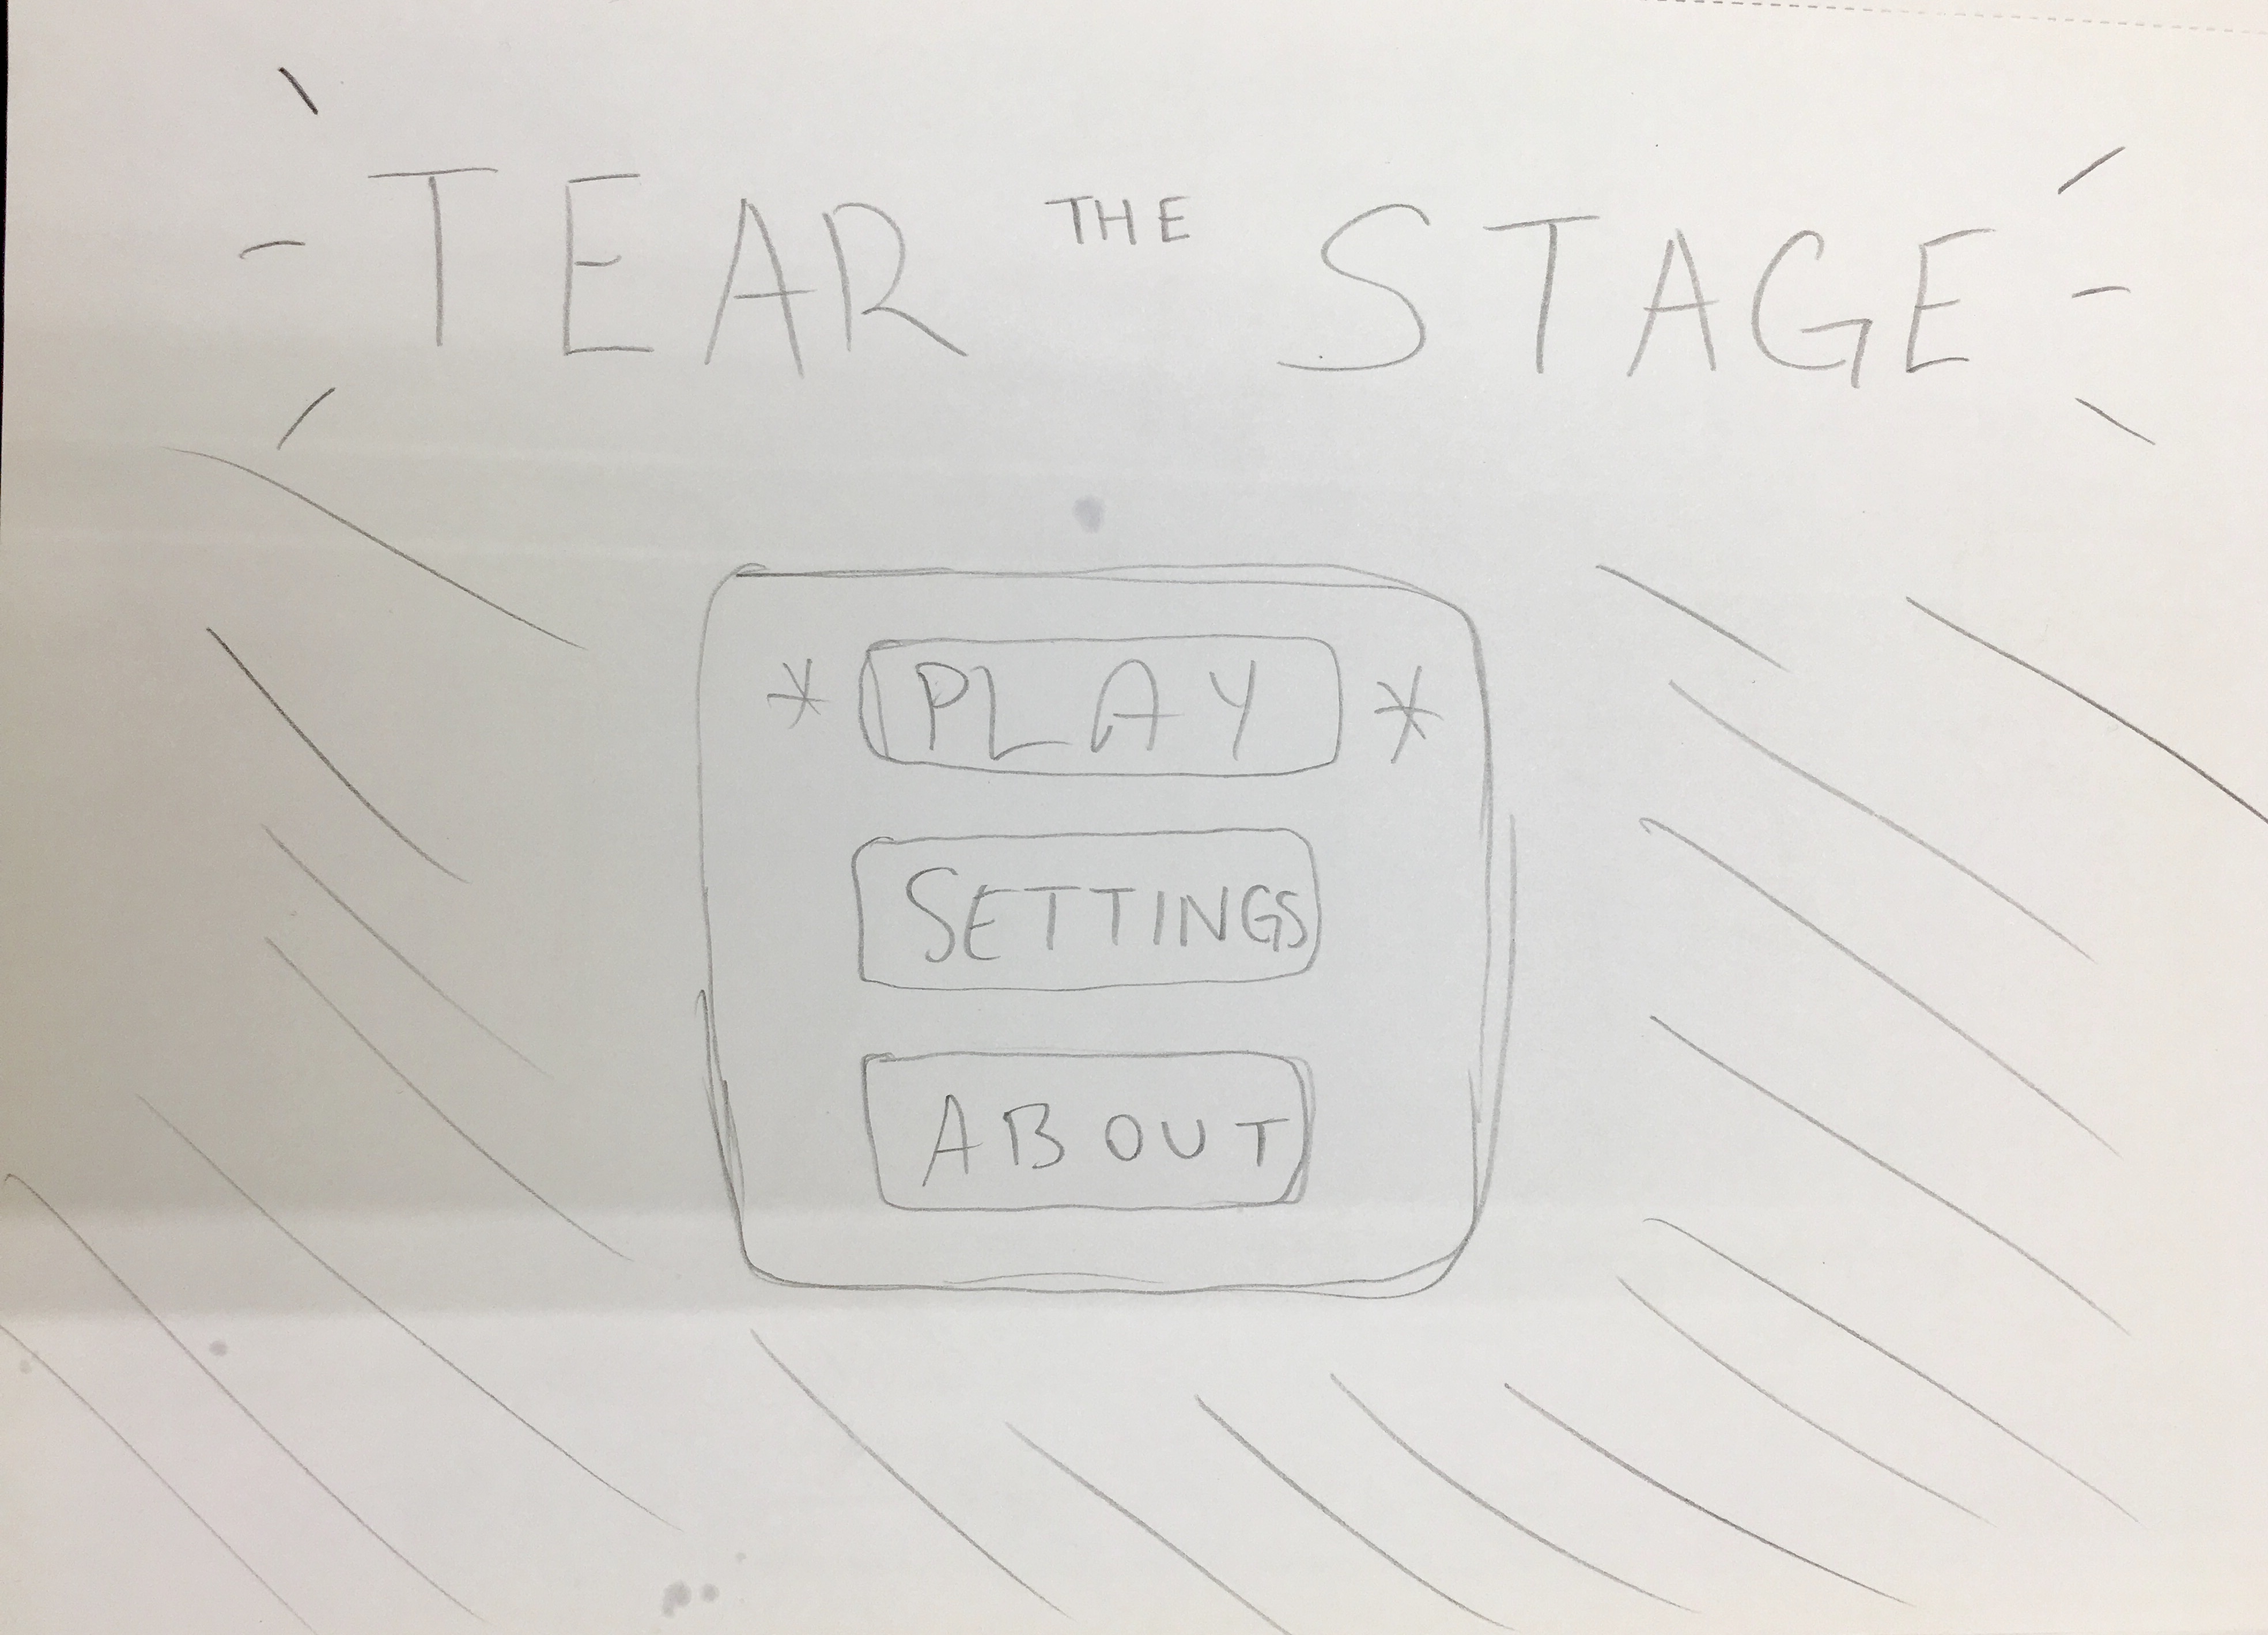 TEAR THE STAGE
* PLAY *
SETTINGS
ABOUT